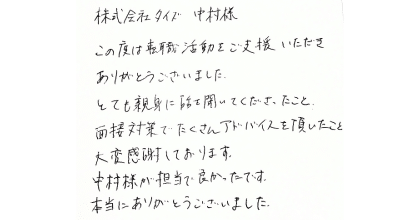 株式会社タイズ 中村様
この度は転職活動をご支援いただき
ありがとうございました.
とても親身に話を聞いてくださったこと.
面接対策でたくさんアドバイスを頂いたこと
大変感謝しております.
中村様が担当で良かったです.
本当にありがとうございました.